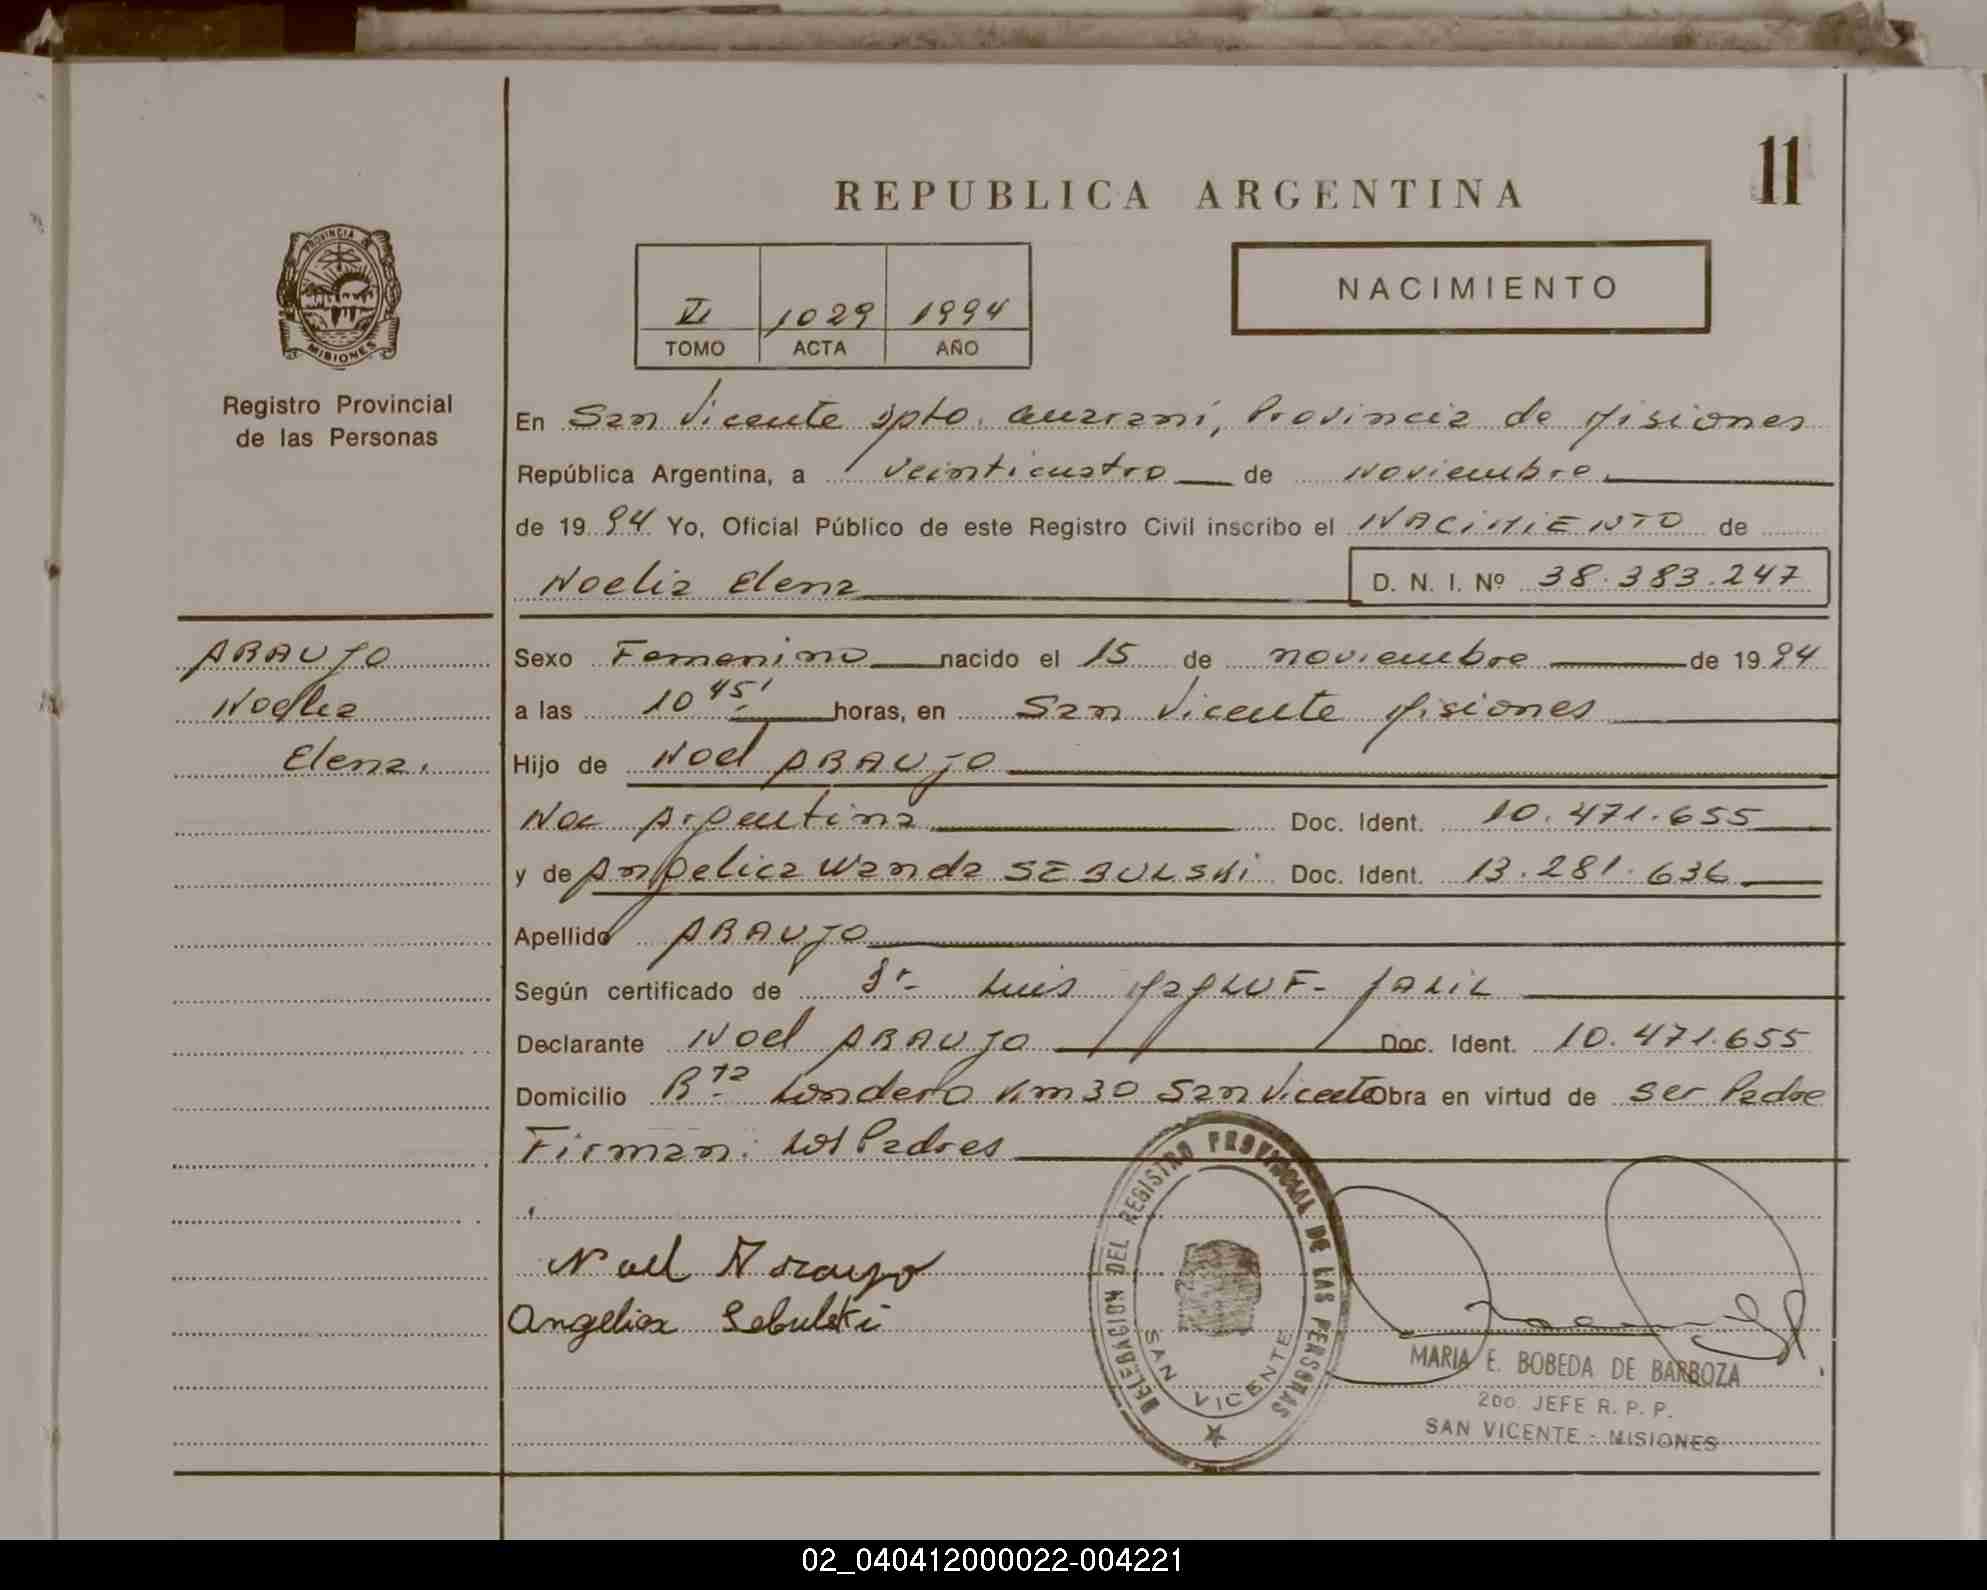 11
REPUBLICA ARGENTINA
PROVINCIA DE
MISIONES
Registro Provincial
de las Personas
VI 1029 1994
TOMO ACTA AÑO
NACIMIENTO
En San Vicente Dpto. Guaraní, Provincia de Misiones
República Argentina, a veinticuatro de Noviembre
de 1994 Yo, Oficial Público de este Registro Civil inscribo el NACIMIENTO de
Noelia Elena D. N. I. Nº 38.383.247
ARAUJO
Noelia
Elena.
Sexo Femenino nacido el 15 de noviembre de 1994
a las 10 45' horas, en San Vicente Misiones
Hijo de Noel ARAUJO
Nac Argentina Doc. Ident. 10.471.655
y de Angelica Wanda SEBULSKi Doc. Ident. 13.281.636
Apellido ARAUJO
Según certificado de Dr. Luis JALIL
Declarante Noel ARAUJO Doc. Ident. 10.471.655
Domicilio Rta Londero Km 30 San Vicente Obra en virtud de ser Padre
Firman: los Padres
Noel Araujo
Angelica Sebulski
DELEGACION DEL REGISTRO PROVINCIAL DE LAS PERSONAS
SAN VICENTE
MARIA E. BOBEDA DE BARBOZA
2do JEFE R. P. P.
SAN VICENTE - MISIONES
02_040412000022-004221